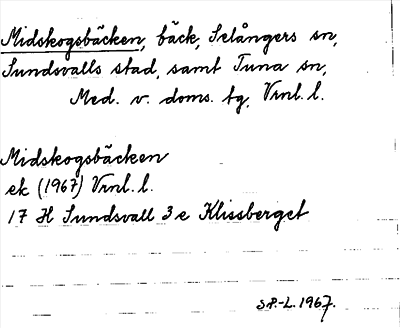 Midskogsbäcken, bäck, Selångers sn,
Sundsvalls stad, samt Tuna sn,
Med. v. doms. tg, Vrnl. l.
Midskogsbäcken
ek (1967) Vrnl. l.
17 H Sundsvall 3 e Klissberget
SP.-L. 1967.